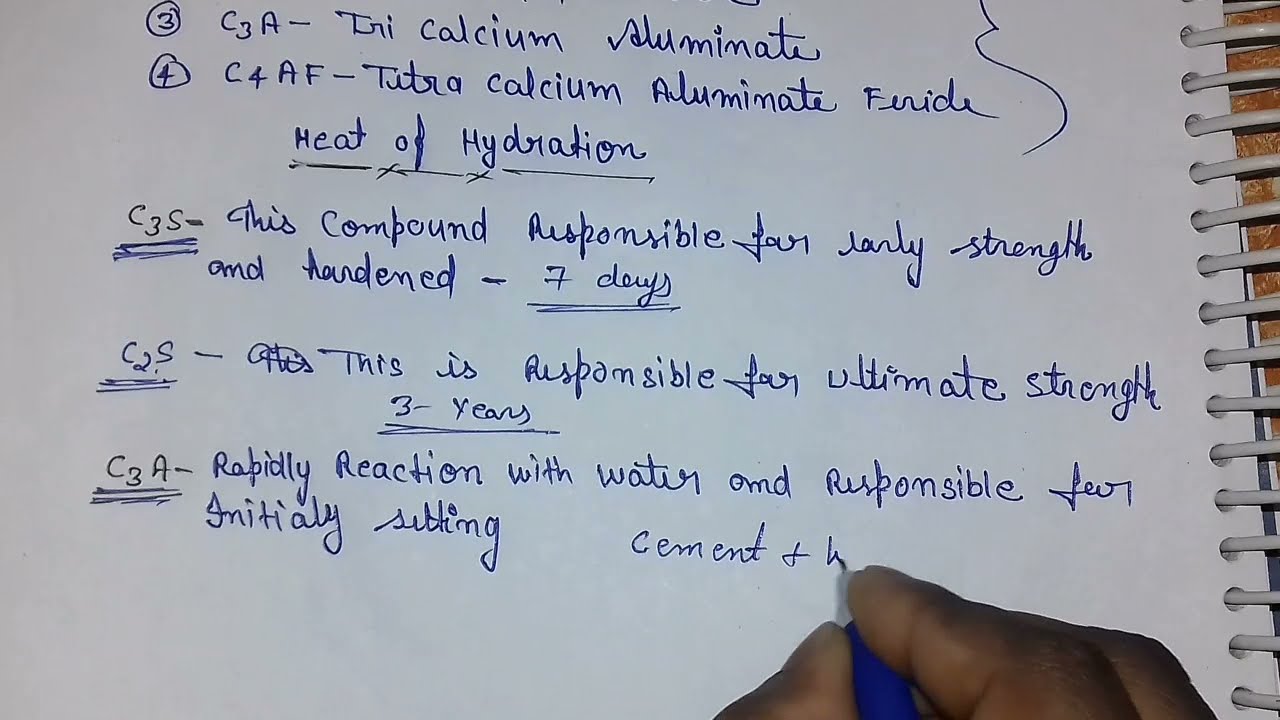 ③ C3A – Tri Calcium Aluminate
④ C4AF – Tetra Calcium Aluminate Feride
Heat of Hydration
C3S – This Compound Responsible for early strength
and hardened – 7 days
C2S – This is Responsible for ultimate strength
3 – Years
C3A – Rapidly Reaction with water and Responsible for
Initialy setting
Cement +